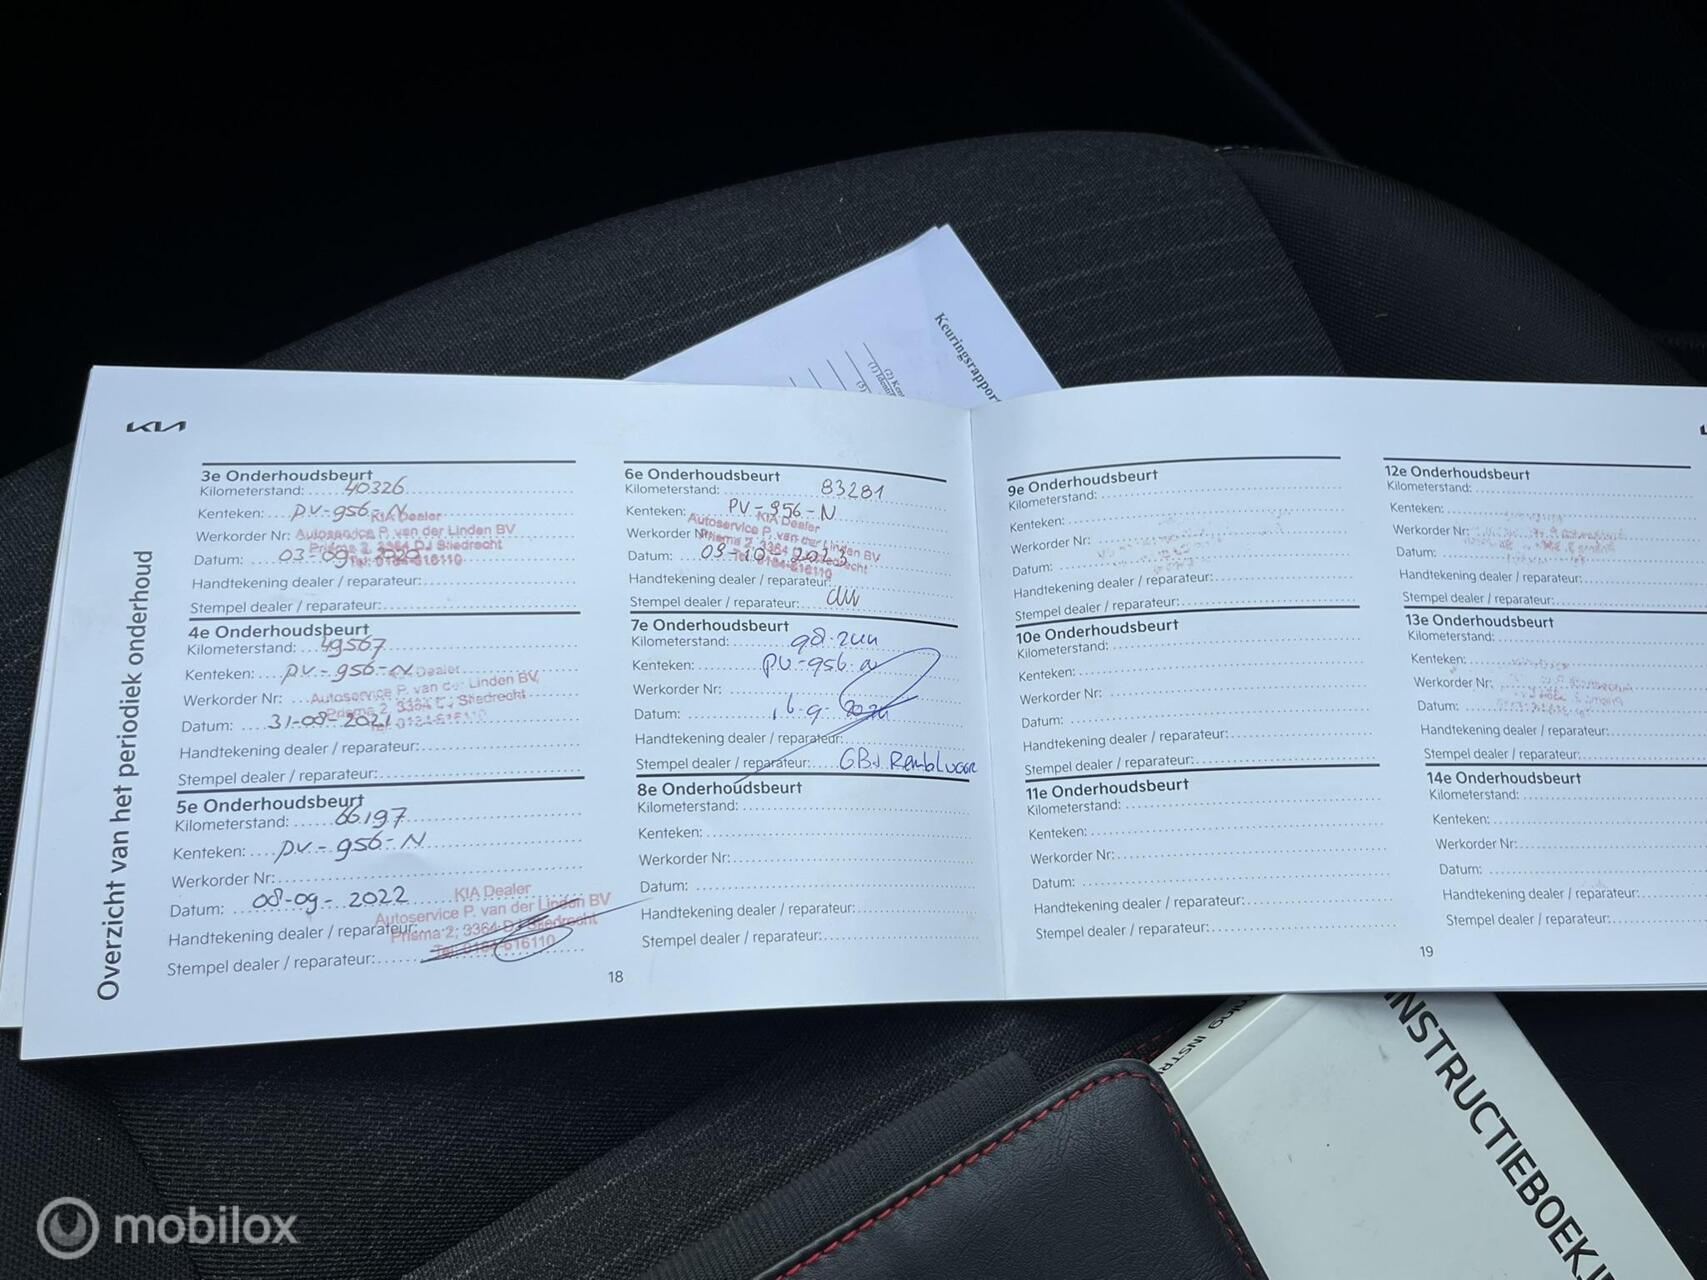 Keuringsrapport
KIA
Overzicht van het periodiek onderhoud
3e Onderhoudsbeurt
Kilometerstand: 40326
Kenteken: PV-956-N
KIA Dealer
Werkorder Nr: Autoservice P. van der Linden BV
Prisma 2, 3364 DJ Sliedrecht
Datum: 03-09-2020
Tel: 0184-616110
Handtekening dealer / reparateur:
Stempel dealer / reparateur:
4e Onderhoudsbeurt
Kilometerstand: 49567
Kenteken: PV-956-N
Dealer
Werkorder Nr: Autoservice P. van der Linden BV
Prisma 2, 3364 DJ Sliedrecht
Datum: 31-08-2021
Tel. 0184-616110
Handtekening dealer / reparateur:
Stempel dealer / reparateur:
5e Onderhoudsbeurt
Kilometerstand: 66197
Kenteken: PV-956-N
Werkorder Nr:
Datum: 08-09-2022
KIA Dealer
Autoservice P. van der Linden BV
Handtekening dealer / reparateur:
Prisma 2, 3364 DJ Sliedrecht
Tel. 0184-616110
Stempel dealer / reparateur:
6e Onderhoudsbeurt
Kilometerstand: 83281
Kenteken: PV-956-N
KIA Dealer
Autoservice P. van der Linden BV
Werkorder Nr:
Prisma 2, 3364 DJ Sliedrecht
Datum: 09-10-2023
Tel. 0184-616110
Handtekening dealer / reparateur:
Stempel dealer / reparateur:
7e Onderhoudsbeurt
Kilometerstand:
Kenteken: PV-956-N
Werkorder Nr:
Datum:
Handtekening dealer / reparateur:
Stempel dealer / reparateur:
8e Onderhoudsbeurt
Kilometerstand:
Kenteken:
Werkorder Nr:
Datum:
Handtekening dealer / reparateur:
Stempel dealer / reparateur:
18
9e Onderhoudsbeurt
Kilometerstand:
Kenteken:
Werkorder Nr:
Datum:
Handtekening dealer / reparateur:
Stempel dealer / reparateur:
10e Onderhoudsbeurt
Kilometerstand:
Kenteken:
Werkorder Nr:
Datum:
Handtekening dealer / reparateur:
Stempel dealer / reparateur:
11e Onderhoudsbeurt
Kilometerstand:
Kenteken:
Werkorder Nr:
Datum:
Handtekening dealer / reparateur:
Stempel dealer / reparateur:
12e Onderhoudsbeurt
Kilometerstand:
Kenteken:
Werkorder Nr:
Datum:
Handtekening dealer / reparateur:
Stempel dealer / reparateur:
13e Onderhoudsbeurt
Kilometerstand:
Kenteken:
Werkorder Nr:
Datum:
Handtekening dealer / reparateur:
Stempel dealer / reparateur:
14e Onderhoudsbeurt
Kilometerstand:
Kenteken:
Werkorder Nr:
Datum:
Handtekening dealer / reparateur:
Stempel dealer / reparateur:
19
mobilox